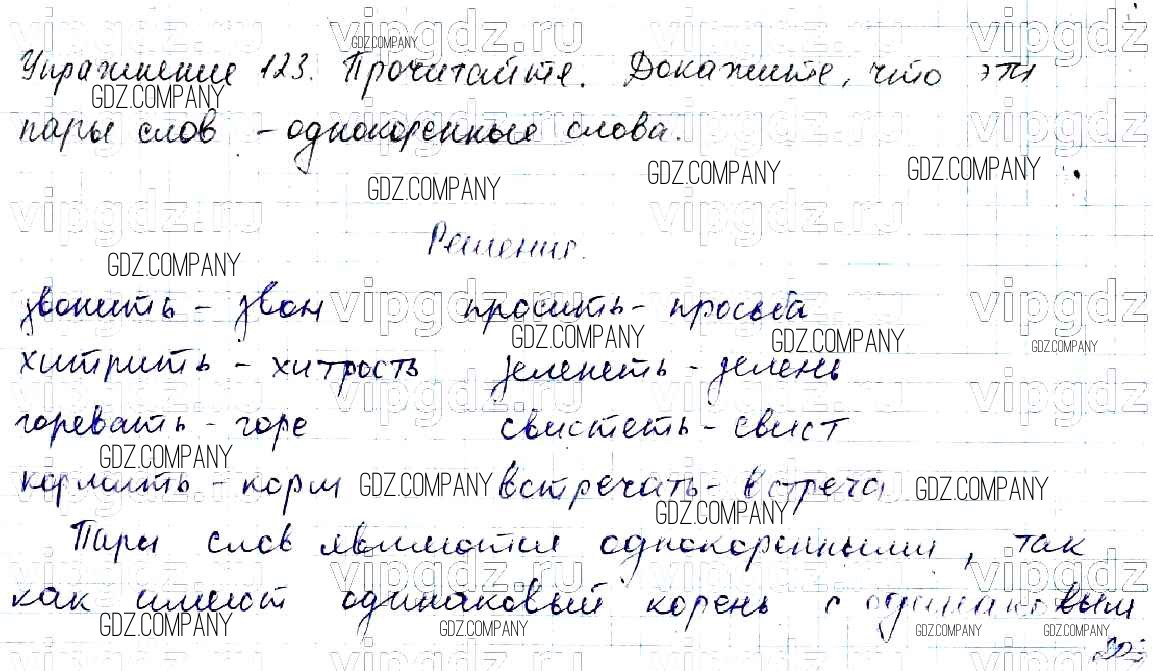 Упражнение 123. Прочитайте. Докажите, что эти
пары слов - однокоренные слова.
Решение.
звонить - звон просить - просьба
хитрить - хитрость зеленеть - зелень
горевать - горе свистеть - свист
кормить - корм встречать - встреча
Пары слов являются однокоренными, так
как имеют одинаковый корень с одинаковым
GDZ.COMPANY
vipgdz.ru